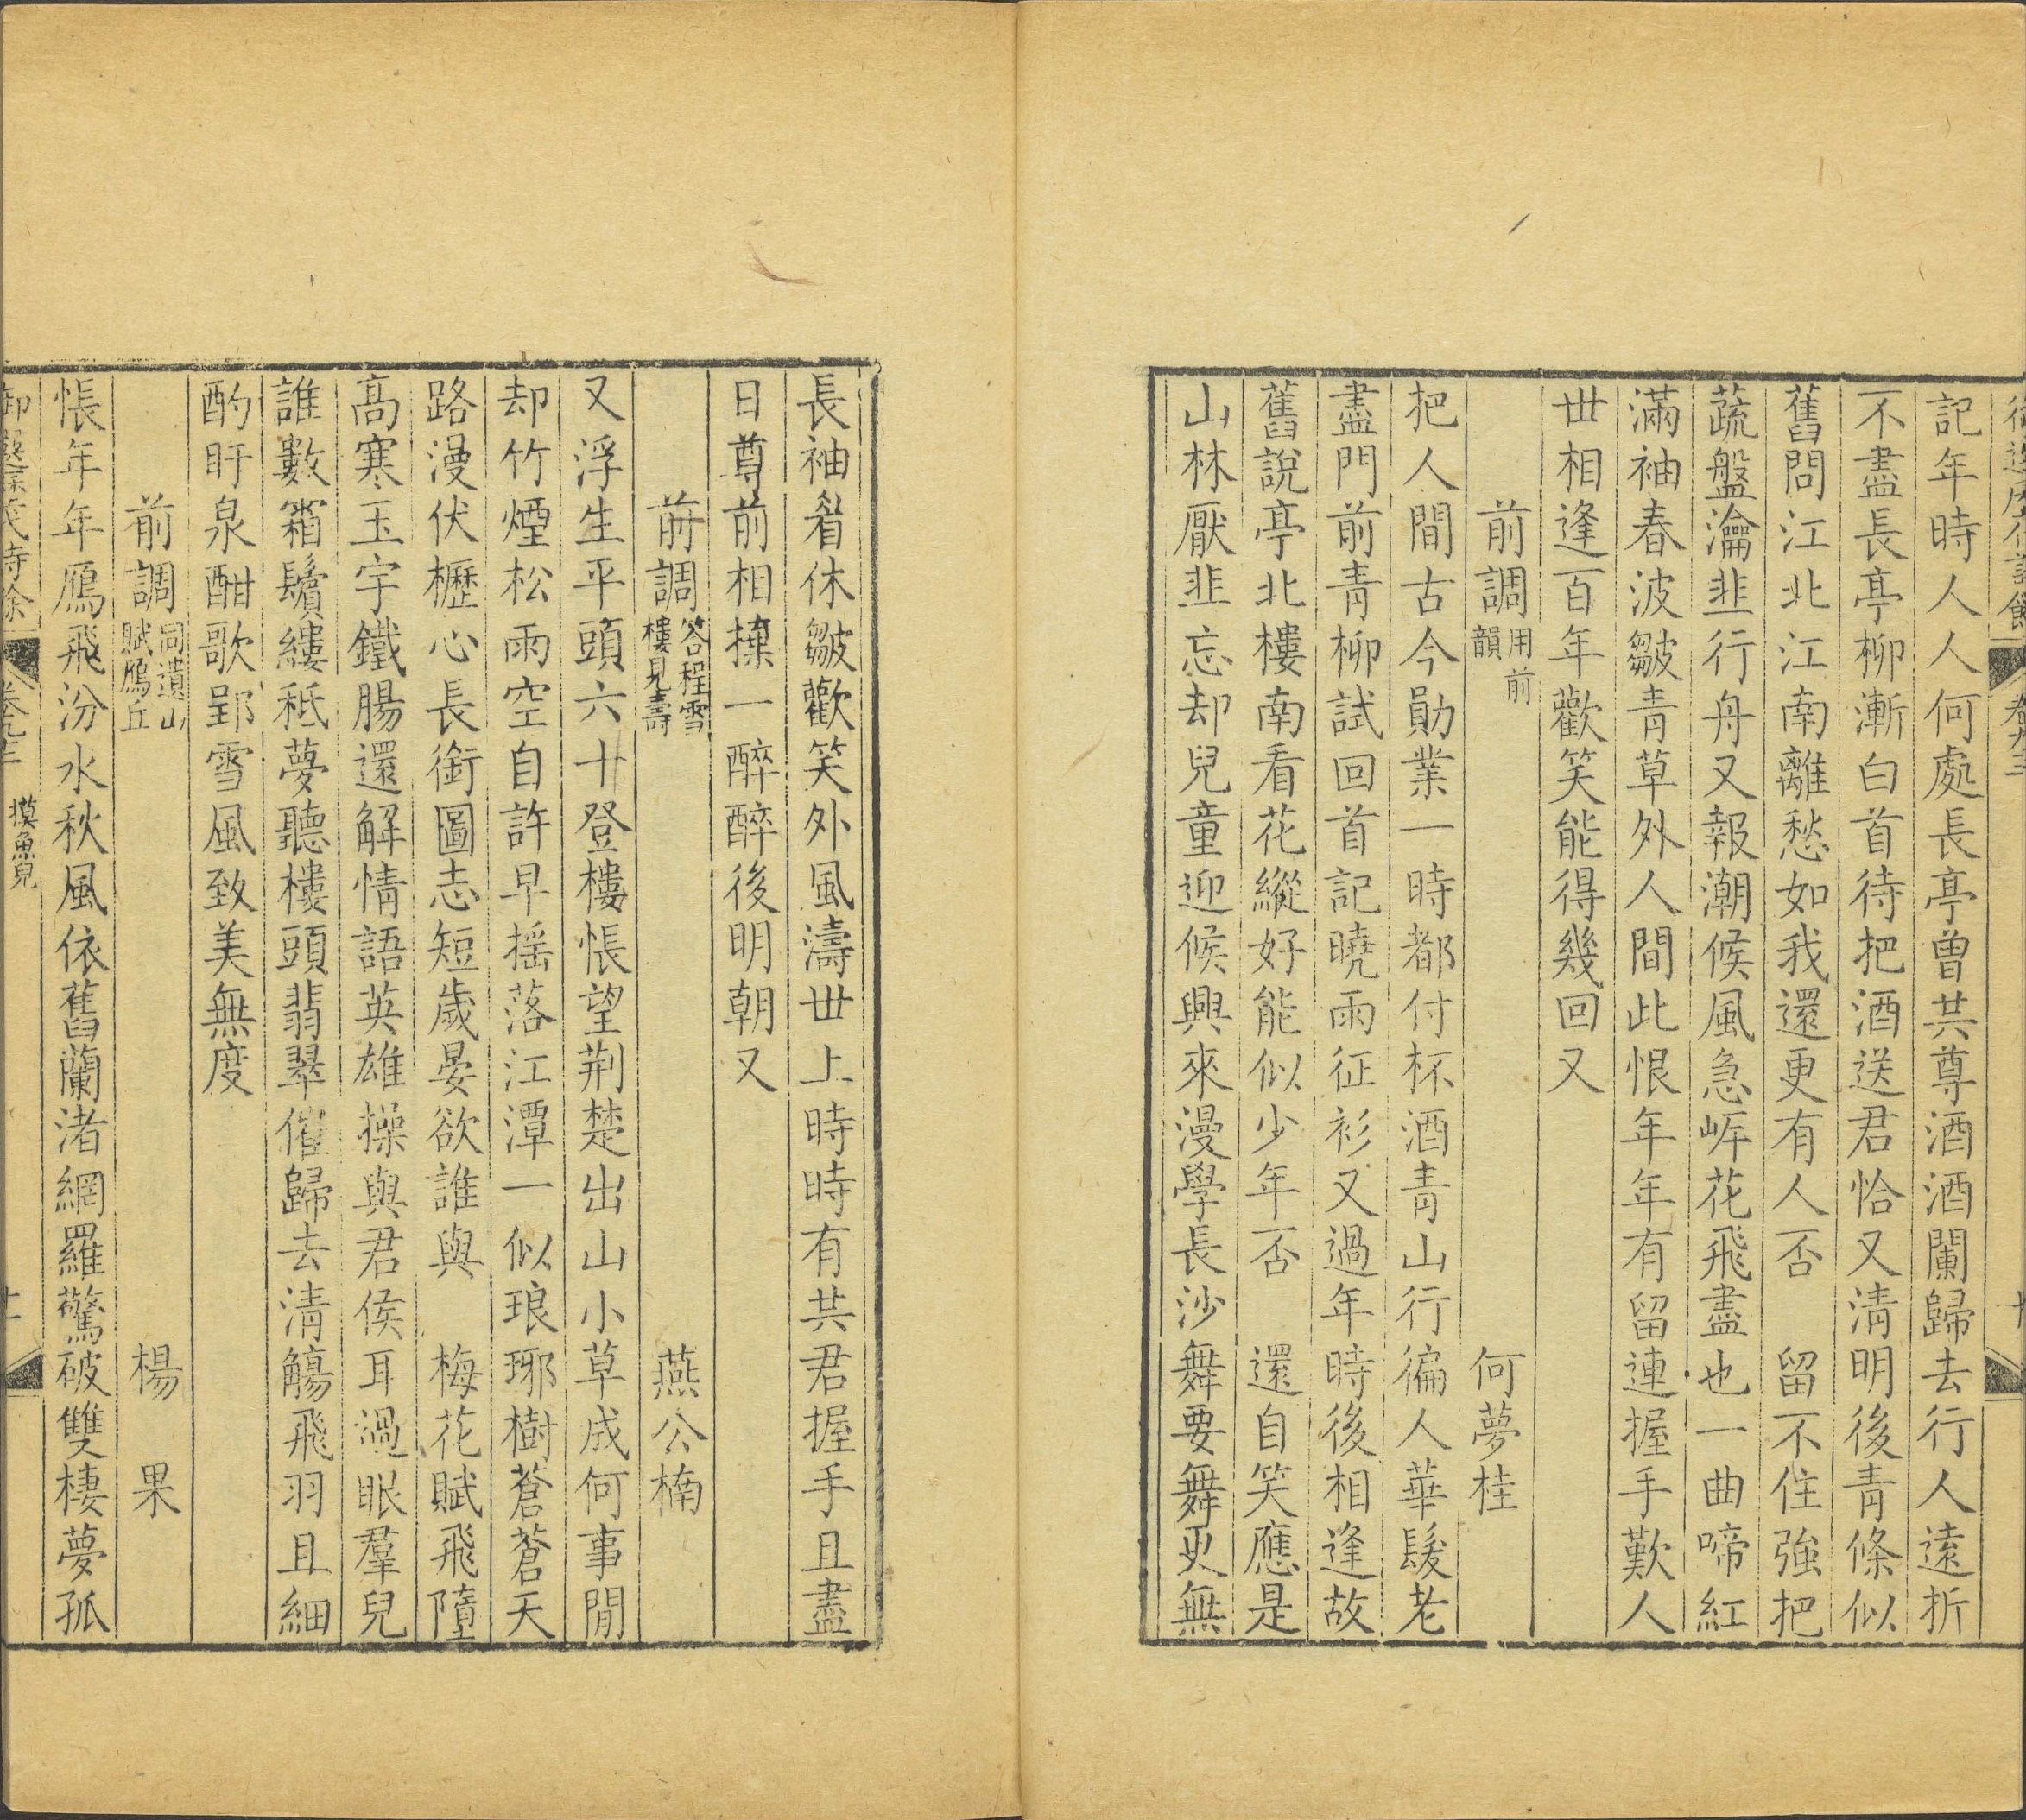 記年時人人何處長亭曾共尊酒酒闌歸去行人遠折
不盡長亭柳漸白首待把酒送君恰又清明後青條似
舊問江北江南離愁如我還更有人否　留不住強把
蔬盤瀹韭行舟又報潮候風急岍花飛盡也一曲啼紅
滿袖春波皺青草外人間此恨年年有留連握手歎人
丗相逢百年歡笑能得幾回又
前調用前韻　何夢桂
把人間古今勛業一時都付杯酒青山行徧人華髮老
盡門前青柳試回首記曉雨征衫又過年時後相逢故
舊說亭北樓南看花縱好能似少年否　還自笑應是
山林厭韭忘却兒童迎候興來漫學長沙舞要舞更無
長袖眉休皺歡笑外風濤丗上時時有共君握手且盡
日尊前相摸一醉醉後明朝又
前調答程雪樓見壽　燕公楠
又浮生平頭六十登樓悵望荆楚出山小草成何事閒
却竹煙松雨空自許早揺落江潭一似琅琊樹蒼蒼天
路漫伏櫪心長銜圖志短歲晏欲誰與　梅花賦飛墮
高寒玉宇鐵腸還解情語英雄操與君侯耳過眼羣兒
誰數霜鬢縷秪夢聽樓頭翡翠催歸去清觴飛羽且細
酌盱泉酣歌郢雪風致美無度
前調同遺山賦鴈丘　楊果
悵年年鴈飛汾水秋風依舊蘭渚網羅驚破雙棲夢孤
摸魚兒